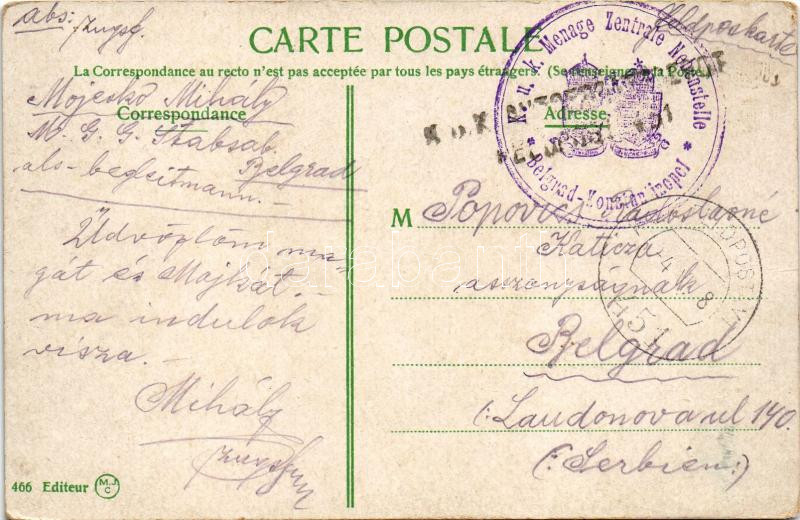 abs:
Zugsf.
Feldpostkarte
CARTE POSTALE
La Correspondance au recto n'est pas acceptée par tous les pays étrangers. (Se renseigner à la Poste)
Correspondance
Adresse
Mojesko Mihály
M. G. G. Stabsab.
Belgrad
als begleitmann.
Üdvözlöm ma-
gát és Mojkát. -
ma indulok
visza. -
Mihály
Zugsf
K. u. k. Menage Zentrale Nebenstelle
* Belgrad-Konstantinopel *
K. u. K.
FELDPOST
451
M Popovics Radoslavné
Katicza
asszonyságnak
Belgrad
(: Laudonova ul 140.
(: Serbien :)
466 Editeur
M.J.
C
darabanth